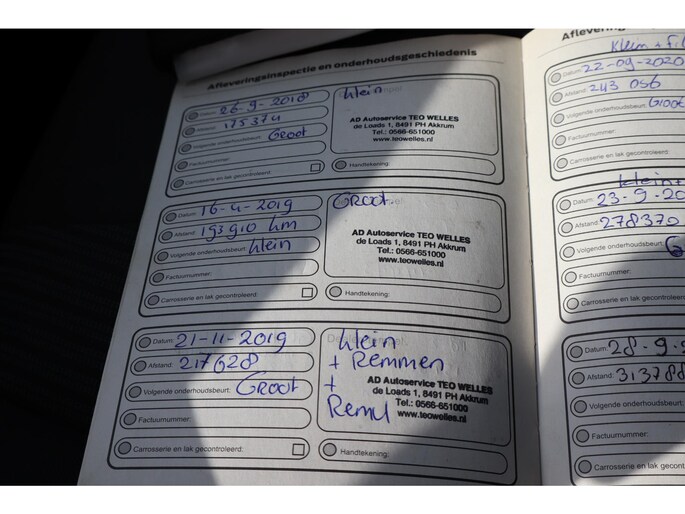 Afleveringsinspectie en onderhoudsgeschiedenis
Datum: 26-9-2018
Afstand: 175374
Volgende onderhoudsbeurt: Groot
Factuurnummer:
Carrosserie en lak gecontroleerd:
klein
AD Autoservice TEO WELLES
de Loads 1, 8491 PH Akkrum
Tel.: 0566-651000
teowelles.nl
Handtekening:
Datum: 16-4-2019
Afstand: 193910 km
Volgende onderhoudsbeurt: klein
Factuurnummer:
Carrosserie en lak gecontroleerd:
Groot
AD Autoservice TEO WELLES
de Loads 1, 8491 PH Akkrum
Tel.: 0566-651000
www.teowelles.nl
Handtekening:
Datum: 21-11-2019
Afstand: 217628
Volgende onderhoudsbeurt: Groot
Factuurnummer:
Carrosserie en lak gecontroleerd:
klein
+ Remmen
+
AD Autoservice TEO WELLES
de Loads 1, 8491 PH Akkrum
Tel.: 0566-651000
www.teowelles.nl
Handtekening:
Klein +
Datum: 22-09-2020
Afstand: 243 056
Volgende onderhoudsbeurt: Groot
Factuurnummer:
Carrosserie en lak gecontroleerd:
klein
Datum: 23-9-20
Afstand: 278370
Volgende onderhoudsbeurt:
Factuurnummer:
Carrosserie en lak gecontroleerd:
Datum: 28-9-
Afstand: 313788
Volgende onderhoudsbeurt:
Factuurnummer:
Carrosserie en lak gecontroleerd: